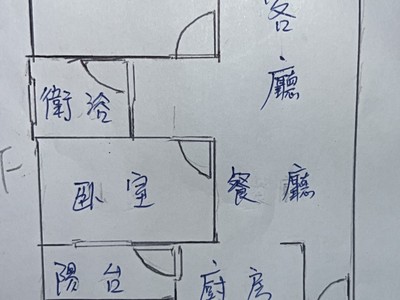 客廳
衛浴
臥室
餐廳
陽台
廚房